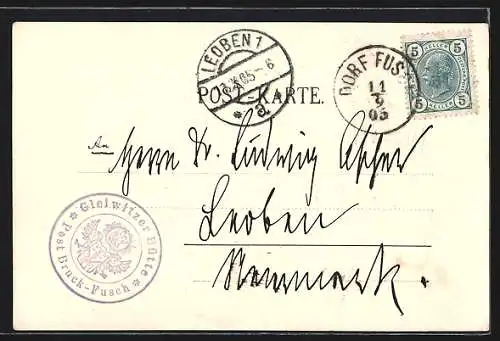 LEOBEN 1
05-6
a
DORF FUS
11
9
05
5 HELLER 5
5 HELLER 5
POST-KARTE.
An
Herrn Dr. Ludwig
Leoben
Steiermark.
* Gleiwitzer Hütte *
Post Bruck-Fusch